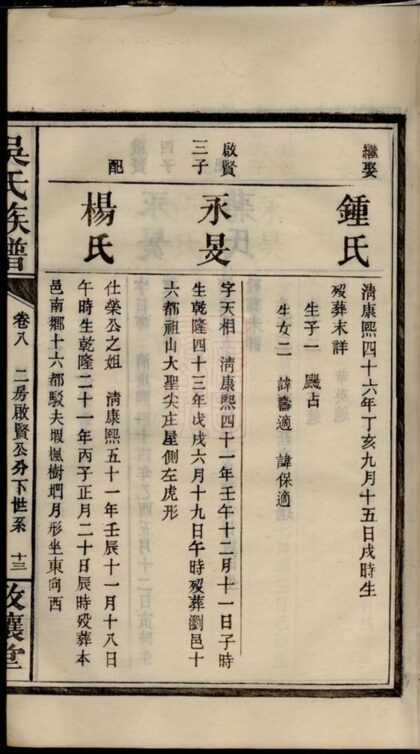 繼娶
鍾氏
清康熙四十六年丁亥九月十五日戌時生
歿葬未詳
生子一 颺占
生女二 諱壽適 諱保適
啟賢
三子
永旻
字天相 清康熙四十一年壬午十二月十一日子時
生乾隆四十三年戊戌六月十九日午時歿葬瀏邑十
六都祖山大聖尖庄屋側左虎形
配
楊氏
仕榮公之姐 清康熙五十一年壬辰十一月十八日
午時生乾隆二十一年丙子正月二十日辰時歿葬本
邑南鄉十六都駁夫塅楓樹垇月形坐東向西
吳氏族譜
卷八 二房啟賢公分下世系 十三
讓堂